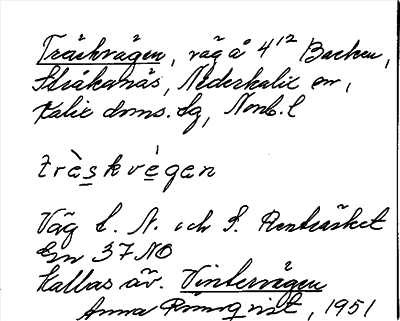 Träskvägen, väg å 4¹² Backen,
Stråkanäs, Nederkalix sn,
Kalix doms. Sg, Norrb. l
träskvägen
Väg t. N. och S. Renträsket
En 37 NO
Kallas äv. Vintervägen
Anna Rönnqvist, 1951